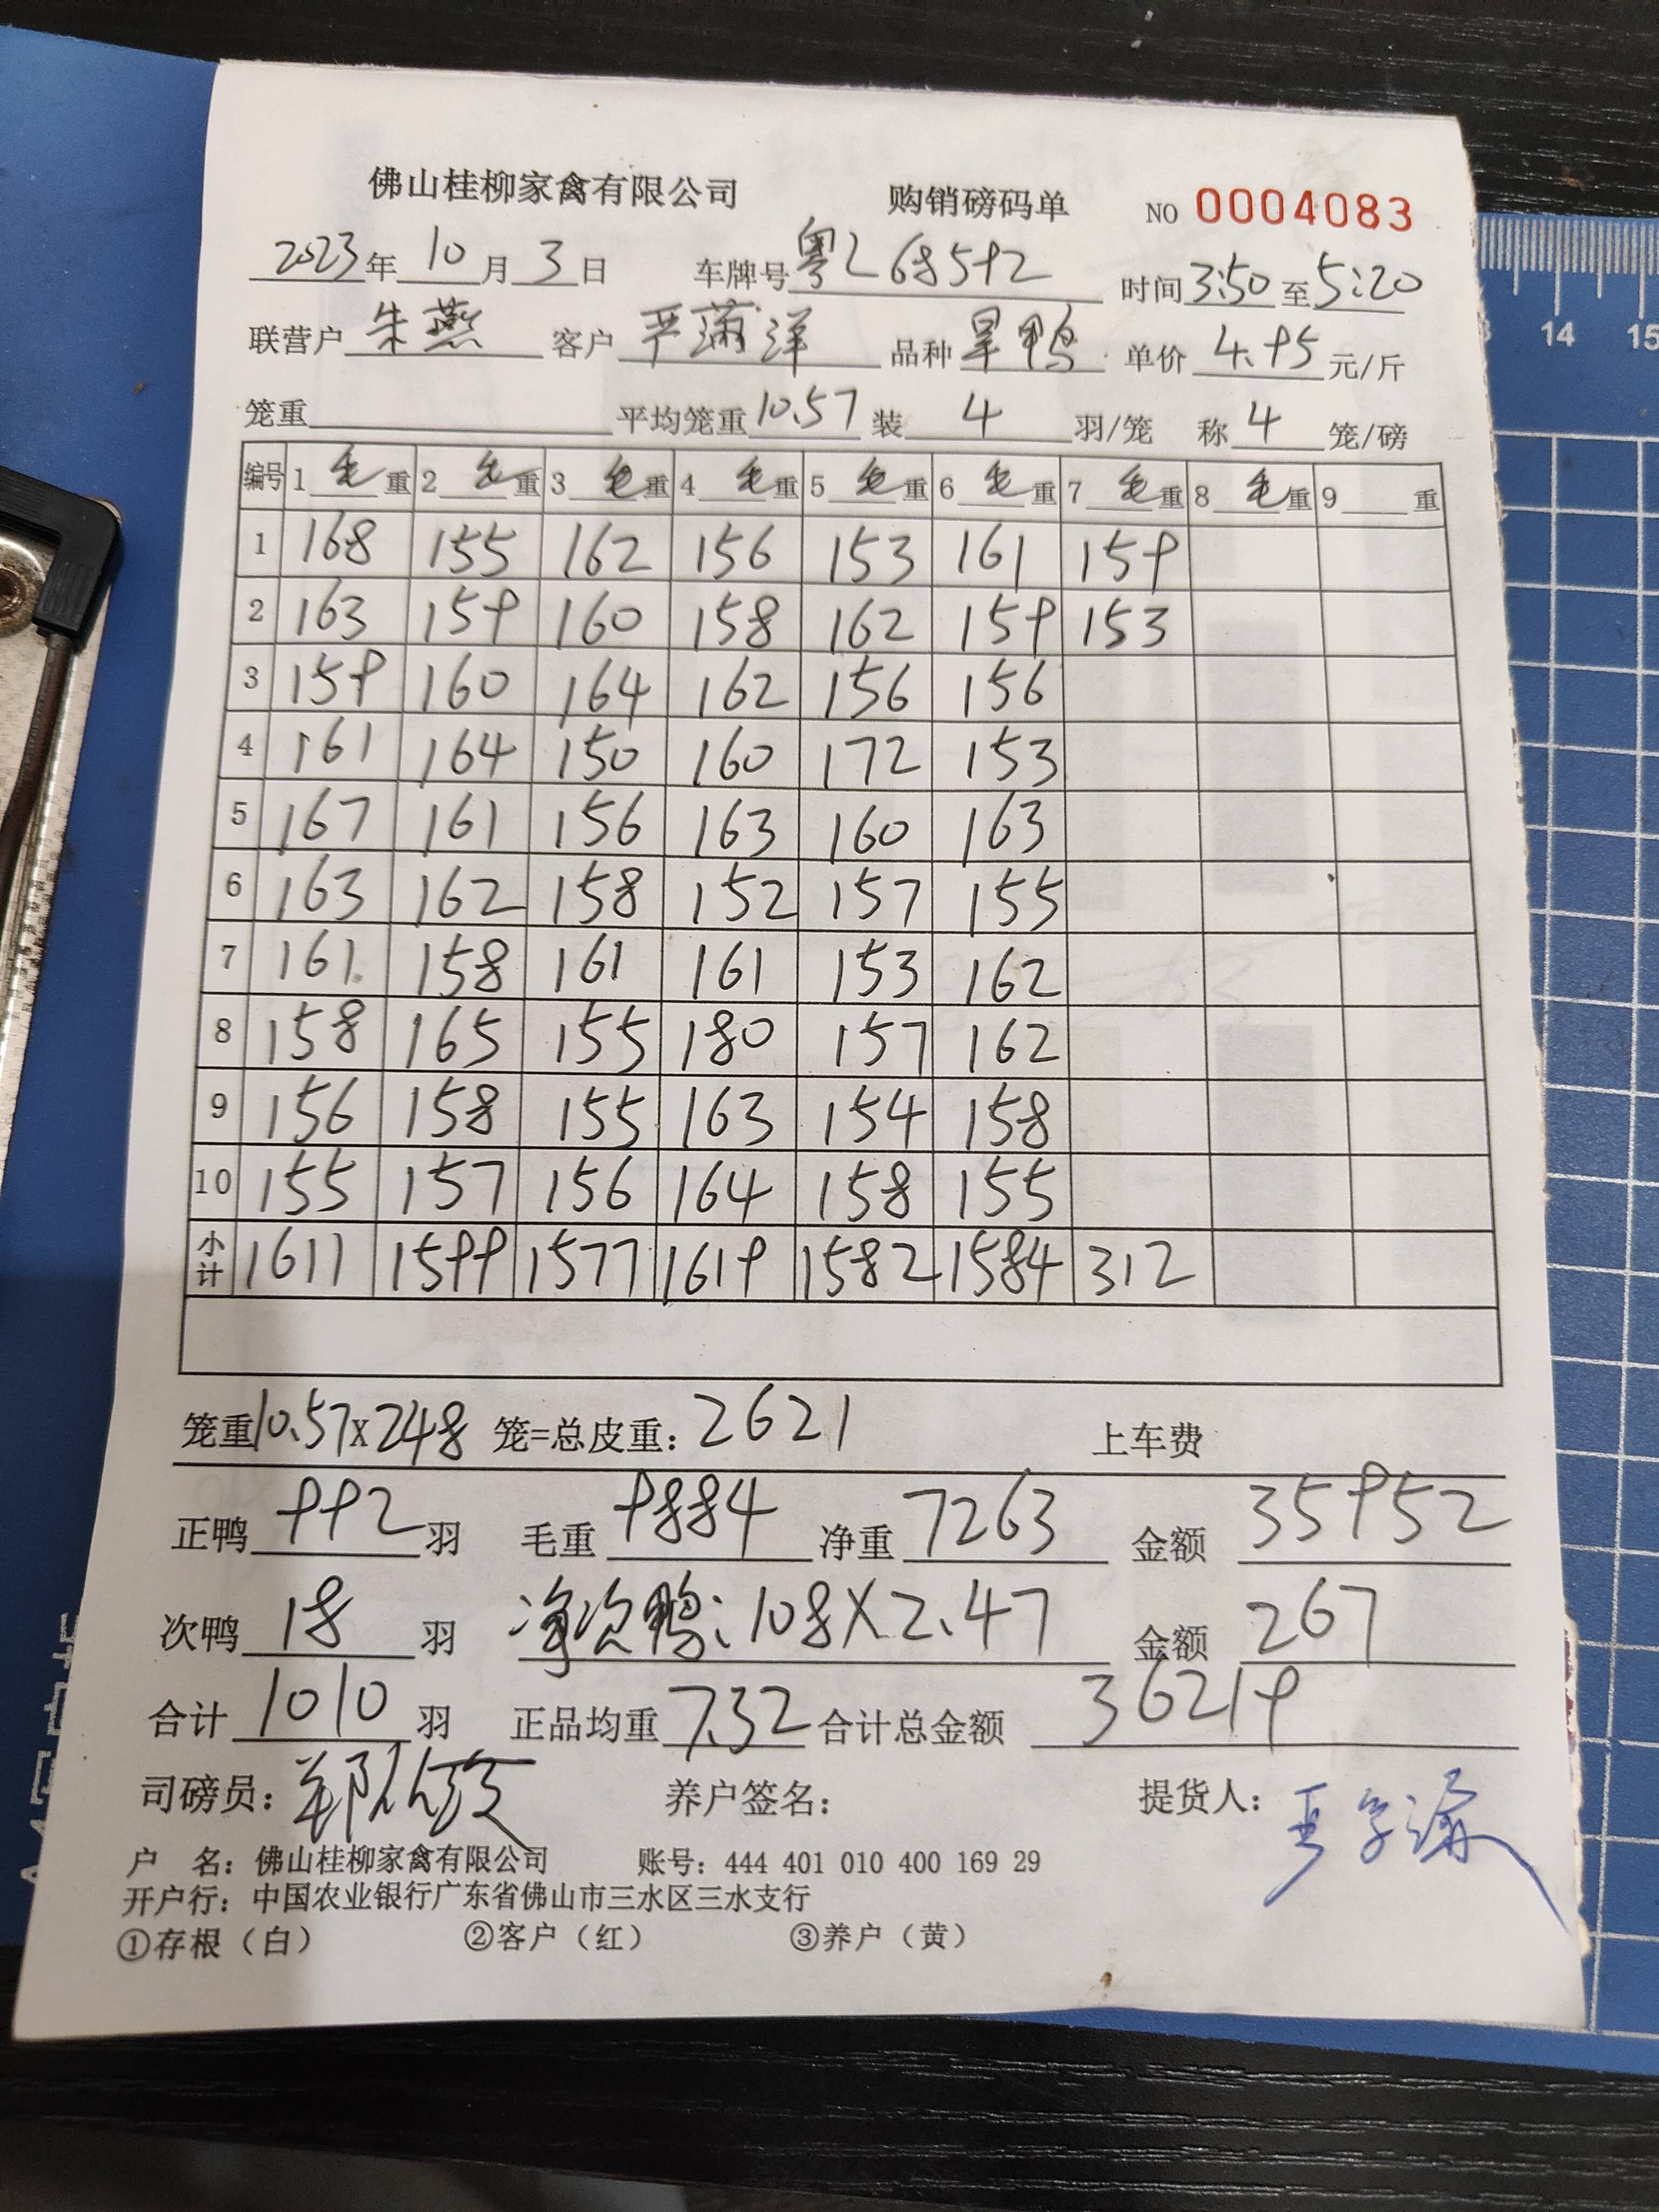 佛山桂柳家禽有限公司 购销磅码单 NO 0004083
2023年10月3日 车牌号粤L68592 时间3:50至5:20
联营户朱燕 客户严蒲洋 品种旱鸭 单价4.95元/斤
笼重 平均笼重10.57装4羽/笼 称4笼/磅
编号 1毛重 2毛重 3毛重 4毛重 5毛重 6毛重 7毛重 8毛重 9重
1 168 155 162 156 153 161 159
2 163 159 160 158 162 159 153
3 159 160 164 162 156 156
4 161 164 150 160 172 153
5 167 161 156 163 160 163
6 163 162 158 152 157 155
7 161 158 161 161 153 162
8 158 165 155 180 157 162
9 156 158 155 163 154 158
10 155 157 156 164 158 155
小计 1611 1599 1577 1619 1582 1584 312
笼重10.57X248 笼=总皮重:2621 上车费
正鸭992羽 毛重9884净重7263 金额35952
次鸭18羽 净次鸭:108X2.47 金额267
合计1010羽 正品均重7.32合计总金额36219
司磅员: 养户签名: 提货人:
户 名:佛山桂柳家禽有限公司 账号:444 401 010 400 169 29
开户行:中国农业银行广东省佛山市三水区三水支行
①存根(白) ②客户(红) ③养户(黄)
14 15